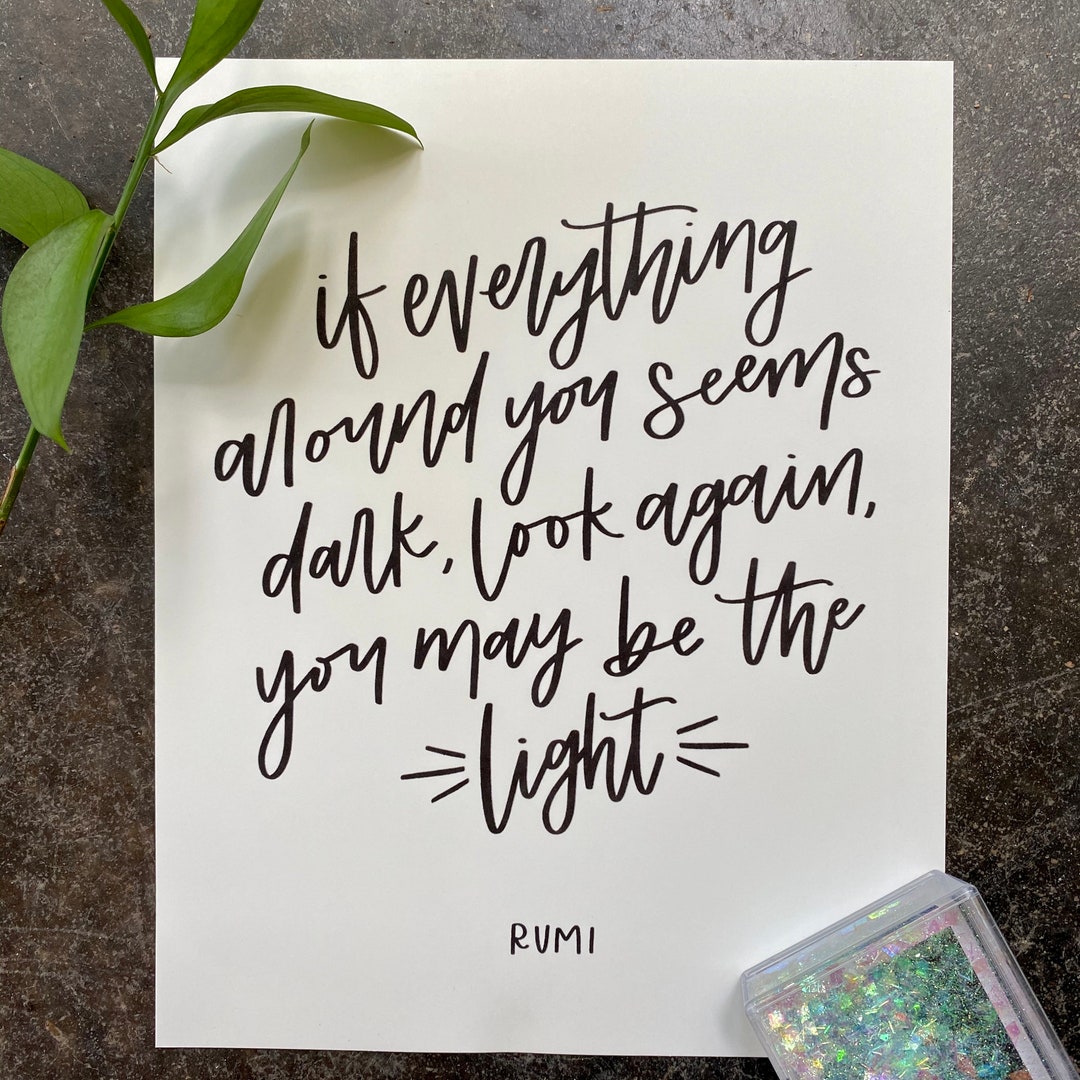 if everything
around you seems
dark, look again,
you may be the
light
RUMI